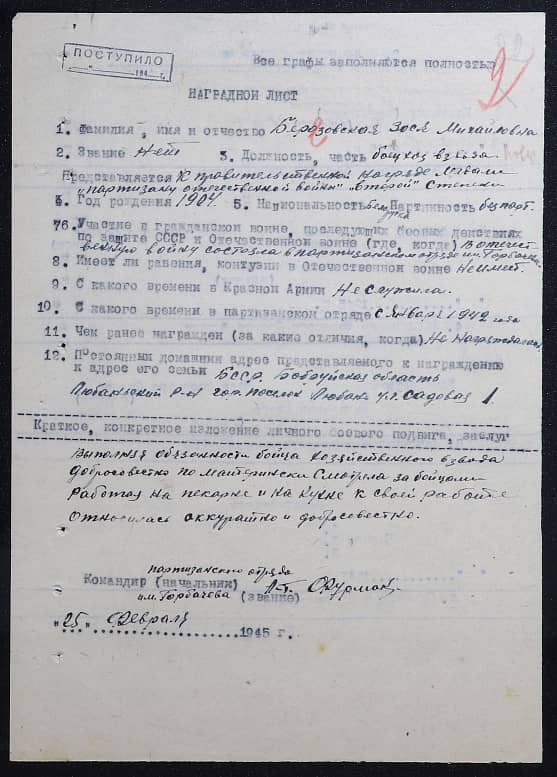 ПОСТУПИЛО
194
Все графы заполняются полностью
2
НАГРАДНОЙ ЛИСТ
1. Фамилия, имя и отчество Березовская Зося Михайловна
2. Звание Нет 3. Должность, часть боец хоз взвода.
Представляется К правительственной награде Медали
"партизану отечественной войны" второй Степени
4. Год рождения 1904. 5. Национальность Партийность безпарт.
76. Участие в гражданской войне, последующих боевых действиях
по защите СССР и Отечественной войне (где, когда) В отечест
венную войну состояла в партизанском отряде им. Горбачева
8. Имеет ли ранения, контузии в Отечественной войне Не имеет.
9. С какого времени в Красной Армии Не служила.
10. С какого времени в партизанском отряде с января 1942 года
11. Чем ранее награжден (за какие отличия, когда) Не Награждалась
12. Постоянный домашний адрес представляемого к награждению
и адрес его семьи БССР. Бобруйская область
Любанский р-н гор. поселок Любань ул. Садовая 1
Краткое, конкретное изложение личного боевого подвига, заслуг
Выполняя обязанности бойца хозяйственного взвода
добросовестно по матерински смотрела за бойцами
работая на пекарне и на кухне к своей работе
относилась аккуратно и добросовестно.
партизанского отряда
Командир (начальник)
им. Горбачева (звание)
"25" Февраля 1945 г.